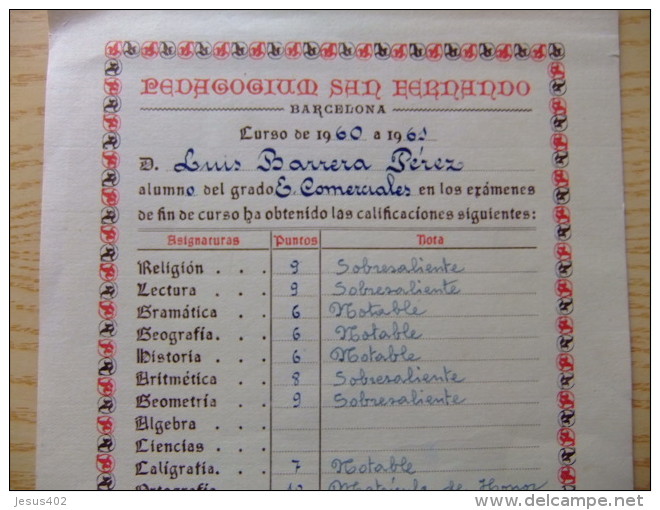 PEDAGOGIUM SAN FERNANDO
BARCELONA
Curso de 1960 a 1961
D. Luis Barrera Pérez
alumno del grado E. Comerciales en los exámenes
de fin de curso ha obtenido las calificaciones siguientes:
Asignaturas Puntos Nota
Religión . . . 9 Sobresaliente
Lectura . . . 9 Sobresaliente
Gramática . . 6 Notable
Geografía. . . 6 Notable
Historia . . . 6 Notable
Aritmética . . 8 Sobresaliente
Geometría . . 9 Sobresaliente
Algebra . . .
Ciencias. . .
Caligrafía. . . 7 Notable
Ortografía 10 Matrícula de Honor
Jesus402
www.delcampe.net